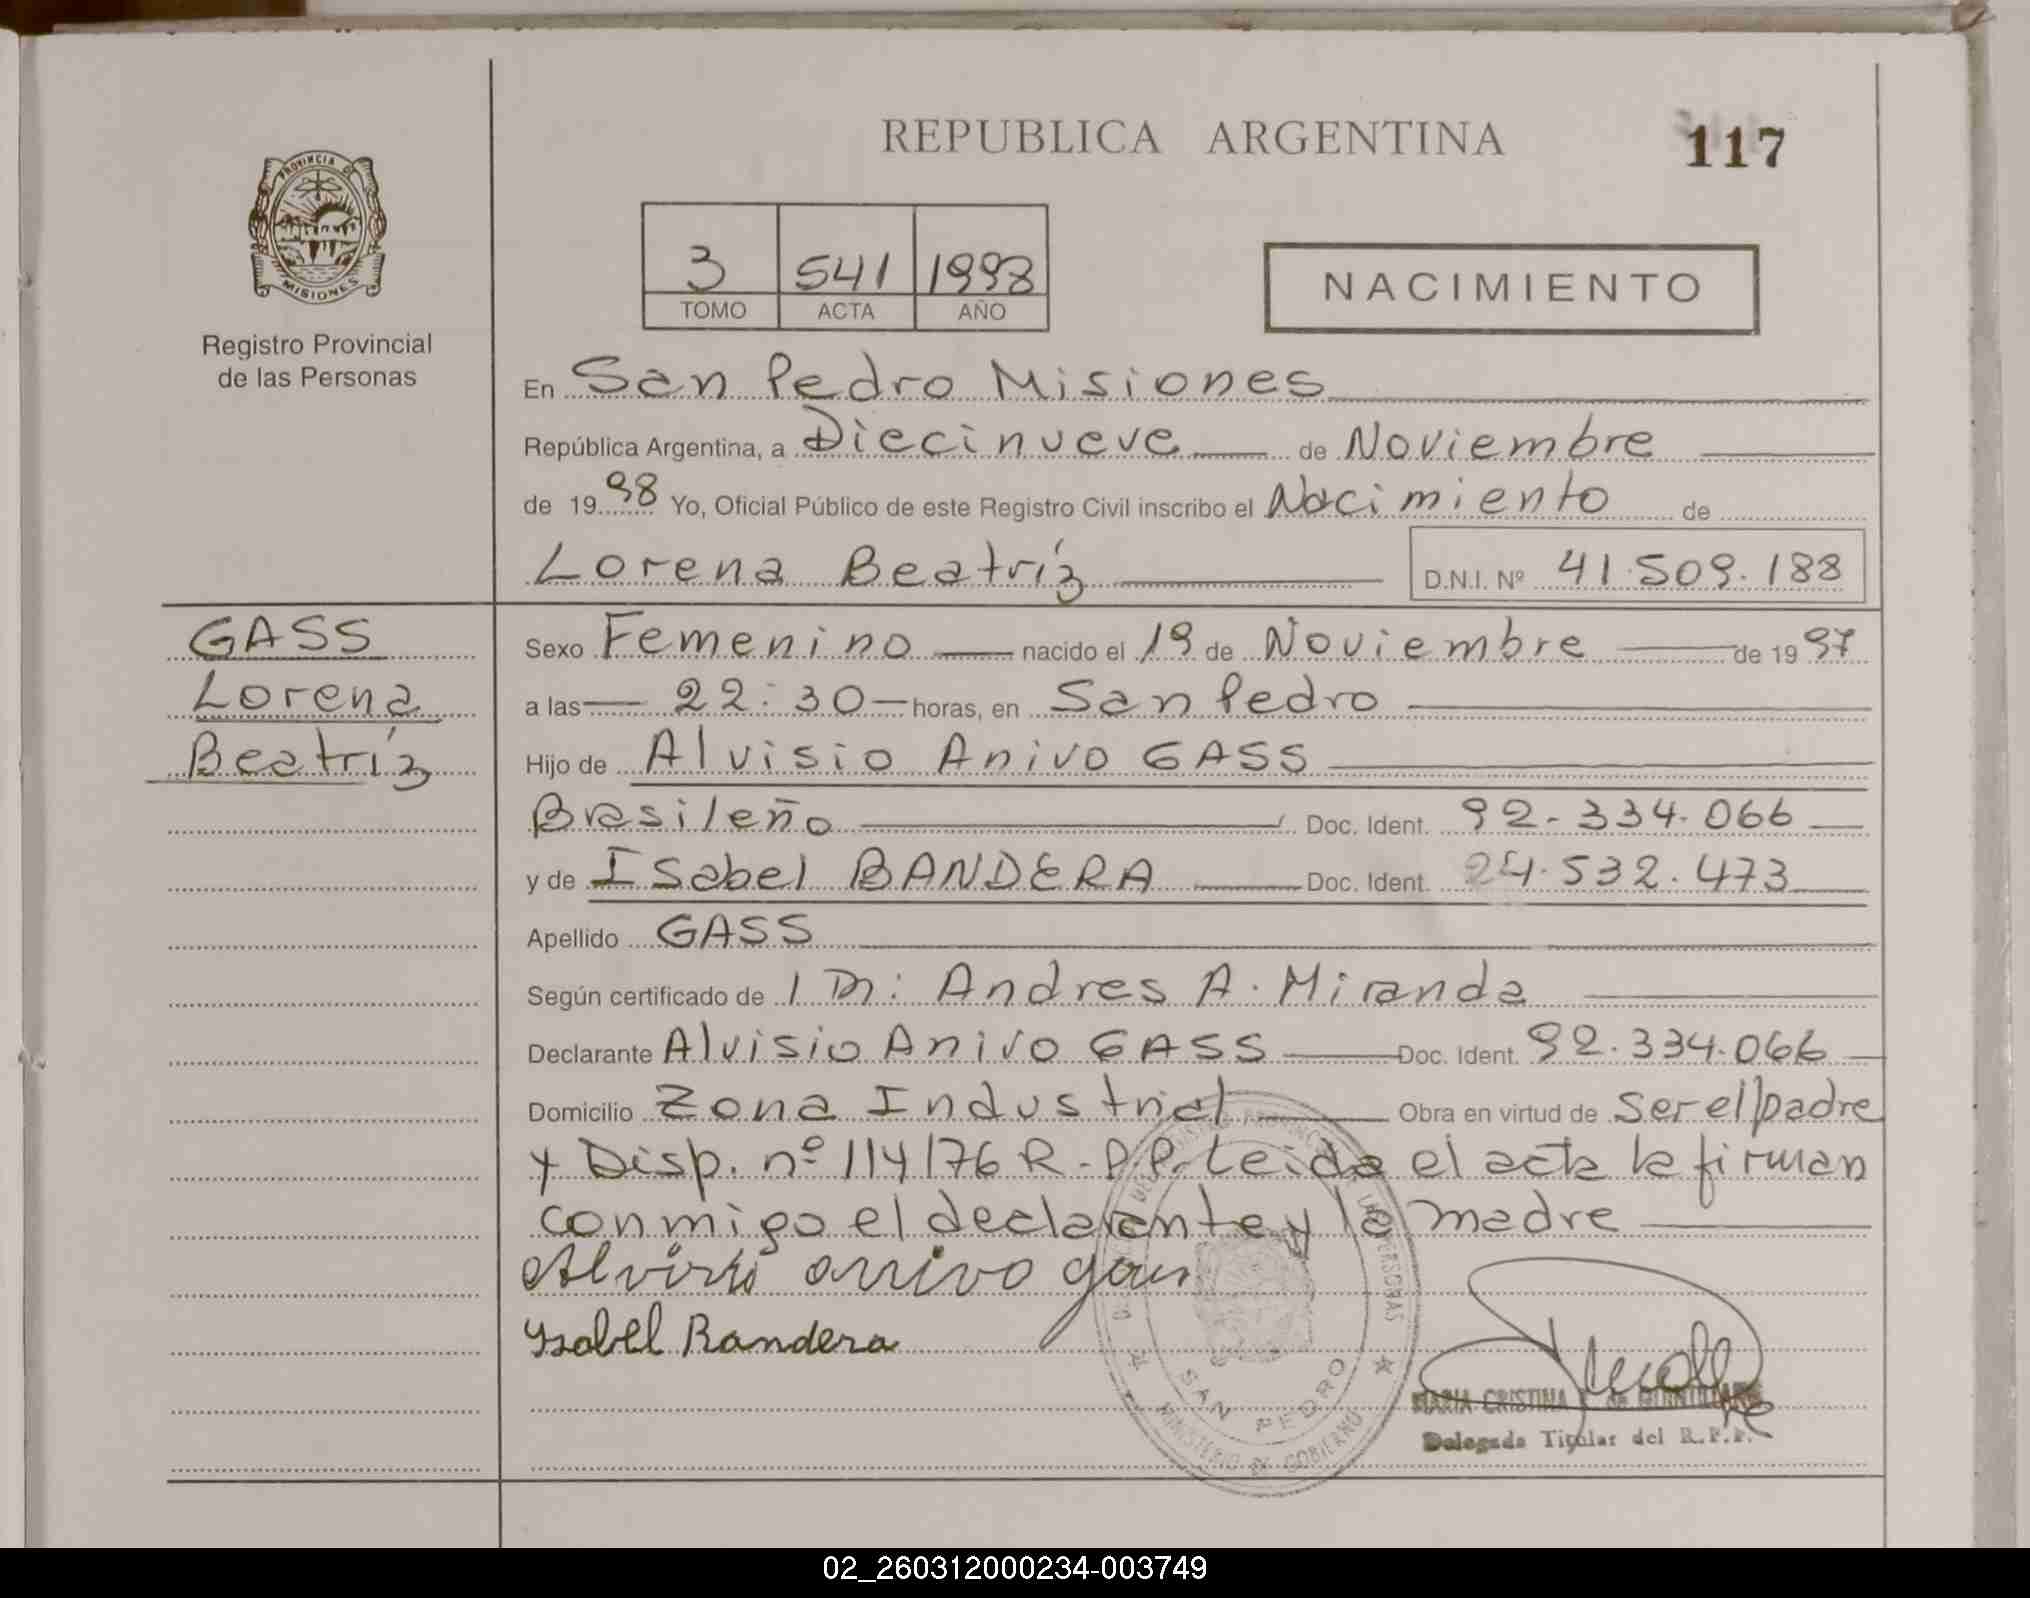 REPUBLICA ARGENTINA
117
PROVINCIA DE
MISIONES
Registro Provincial
de las Personas
3 541 1998
TOMO ACTA AÑO
NACIMIENTO
En San Pedro Misiones
República Argentina, a Diecinueve de Noviembre
de 1998 Yo, Oficial Público de este Registro Civil inscribo el Nacimiento de
Lorena Beatríz D.N.I. Nº 41.509.188
GASS
Lorena
Beatríz
Sexo Femenino nacido el 19 de Noviembre de 1997
a las 22:30 horas, en San Pedro
Hijo de Alvisio Anivo GASS
Brasileño Doc. Ident. 92.334.066
y de Isabel BANDERA Doc. Ident. 24.532.473
Apellido GASS
Según certificado de Andres A. Miranda
Declarante Alvisio Anivo GASS Doc. Ident. 92.334.066
Domicilio Zona Industrial Obra en virtud de ser el padre
y Disp. nº 114/76 R.P.P. Leida el acta la firman
conmigo el declarante y la madre
Ysabel Bandera
SAN PEDRO
MINISTERIO DE GOBIERNO
MARIA CRISTINA
Delegada Titular del R.P.P.
02_260312000234-003749